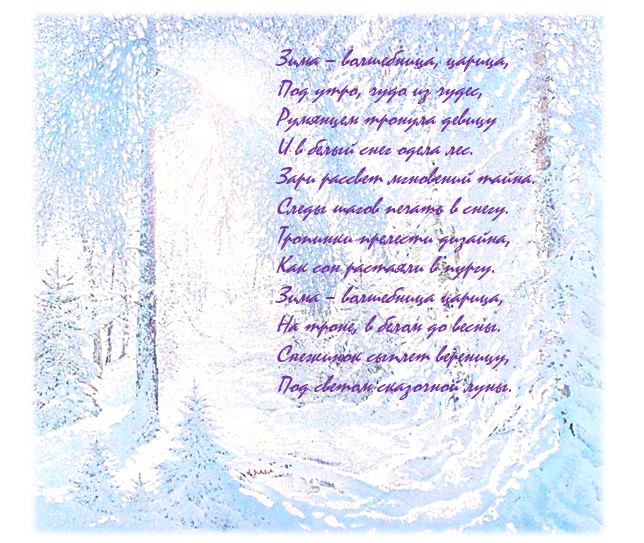 Зима – волшебница, царица,
Под утро, чудо из чудес,
Румянцем тронула девицу
И в белый снег одела лес.
Зари рассвет мгновений тайна.
Следы шагов печать в снегу.
Тропинки прелести дизайна,
Как сон растаяли в пургу.
Зима – волшебница царица,
На троне, в белом до весны.
Снежинок сыплет вереницу,
Под светом сказочной луны.